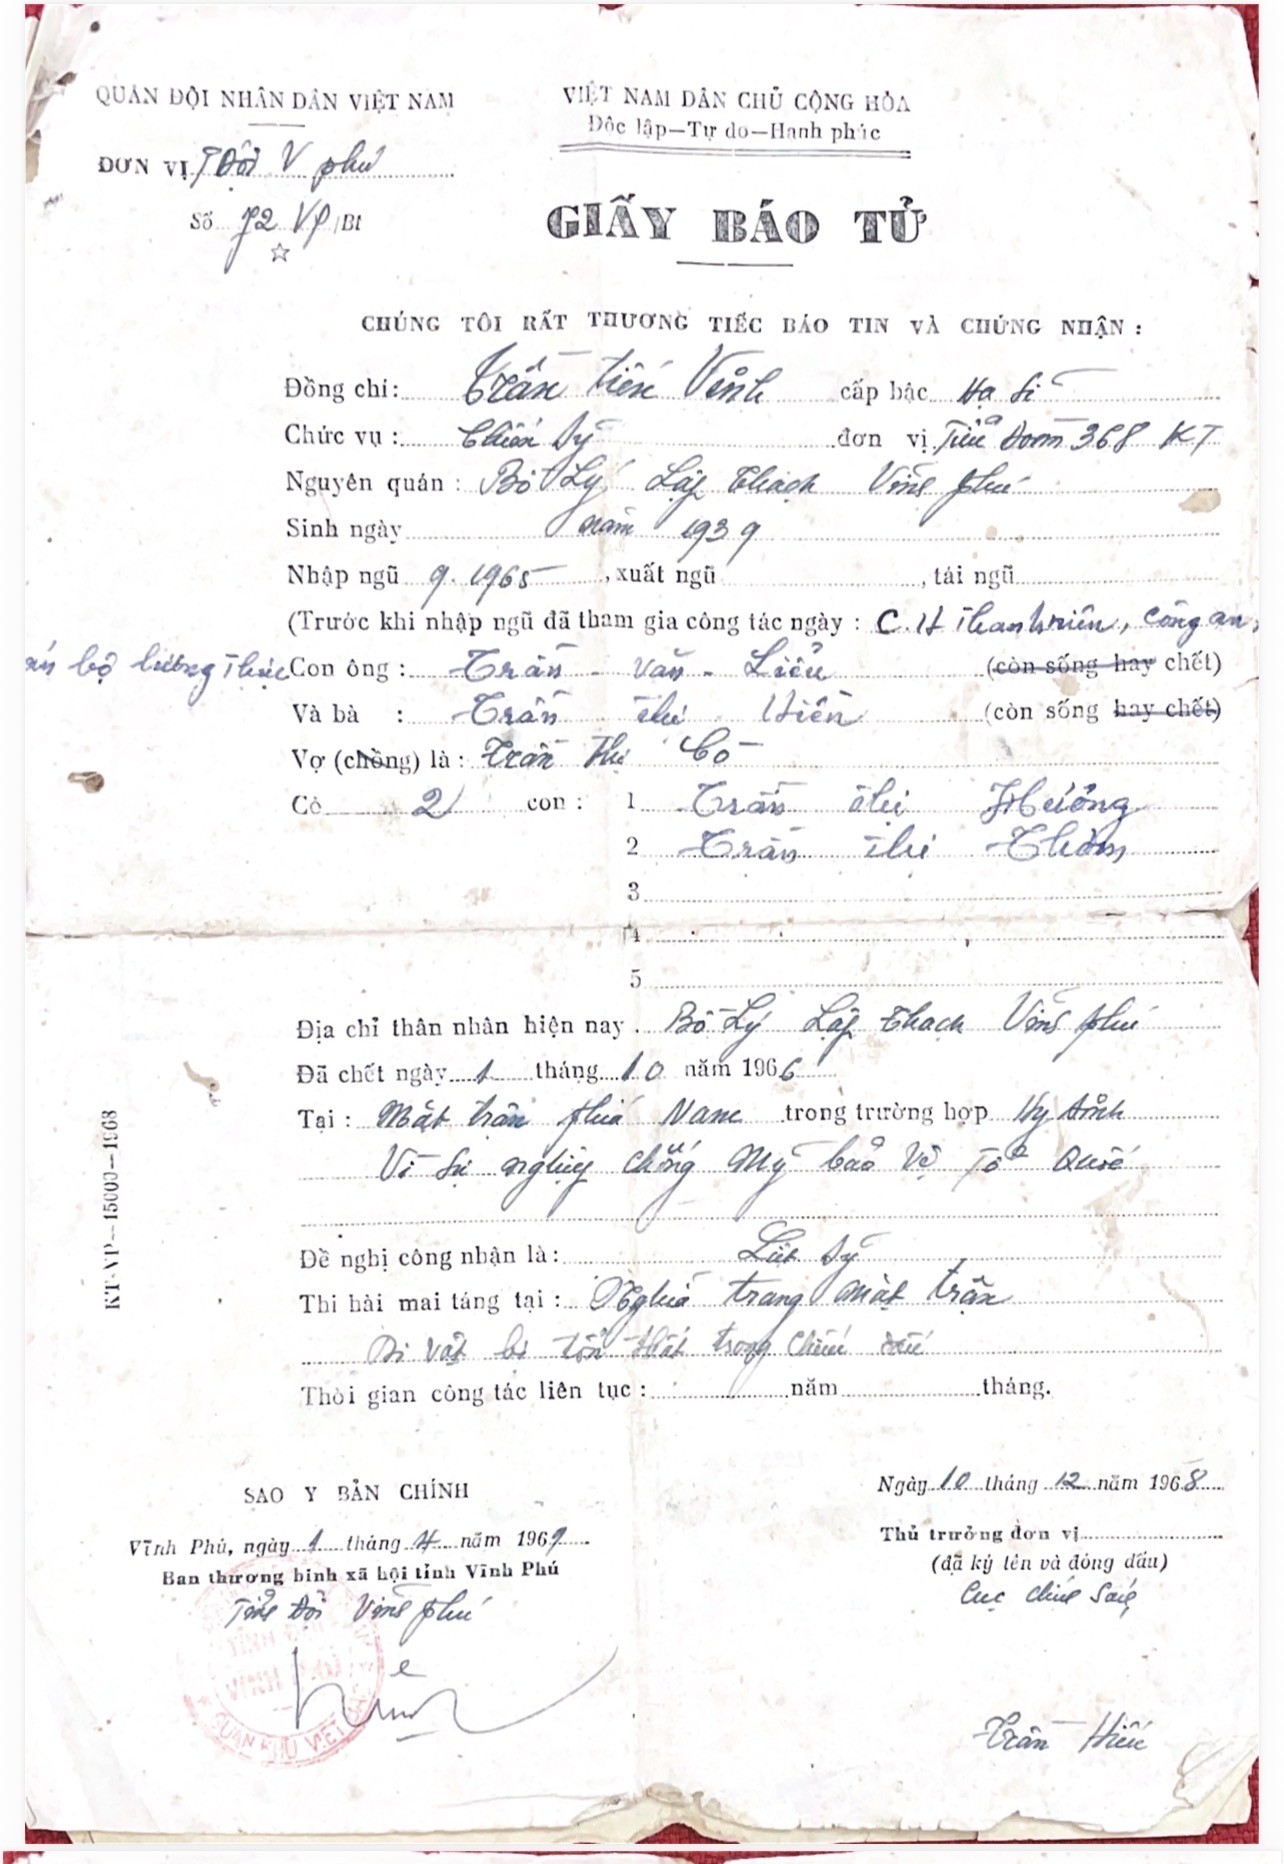 QUÂN ĐỘI NHÂN DÂN VIỆT NAM
ĐƠN VỊ T Đội V phú
Số 72 VP/Bt
VIỆT NAM DÂN CHỦ CỘNG HÒA
Độc lập—Tự do—Hạnh phúc
GIẤY BÁO TỬ
CHÚNG TÔI RẤT THƯƠNG TIẾC BÁO TIN VÀ CHỨNG NHẬN :
Đồng chí: Trần tiến Vinh cấp bậc Hạ sĩ
Chức vụ : Chiến sỹ đơn vị Tiểu Đoàn 368 KT
Nguyên quán : Bồ Lý Lập Thạch Vĩnh phú
Sinh ngày năm 1939
Nhập ngũ 9.1965, xuất ngũ , tái ngũ
(Trước khi nhập ngũ đã tham gia công tác ngày : C.H Thanh niên, công an,
bộ lương thực
Con ông : Trần văn Liễu (còn sống hay chết)
Và bà : Trần thị Hiền (còn sống hay chết)
Vợ (chồng) là : Trần thị Cò
Có 2 con : 1 Trần thị Hưởng
2 Trần thị Thơm
3
4
5
Địa chỉ thân nhân hiện nay. Bồ Lý Lập thạch Vĩnh phú
Đã chết ngày 1 tháng 10 năm 1966
Tại : Mặt trận phía Nam trong trường hợp Hy sinh
Vì sự nghiệp chống Mỹ bảo vệ Tổ Quốc
Đề nghị công nhận là: Liệt sỹ
Thi hài mai táng tại : Nghĩa trang mặt trận
Di vật bị tổn thất trong chiến đấu
Thời gian công tác liên tục : năm tháng.
KT-VP—15000—1968
Ngày 10 tháng 12 năm 1968
Thủ trưởng đơn vị
(đã ký tên và đóng dấu)
Cục chính sách
Trần Hiếu
SAO Y BẢN CHÍNH
Vĩnh Phú, ngày 1 tháng 4 năm 1969
Ban thương binh xã hội tỉnh Vĩnh Phú
Tỉnh Đội Vĩnh phú
QUÂN KHU VIỆT BẮC